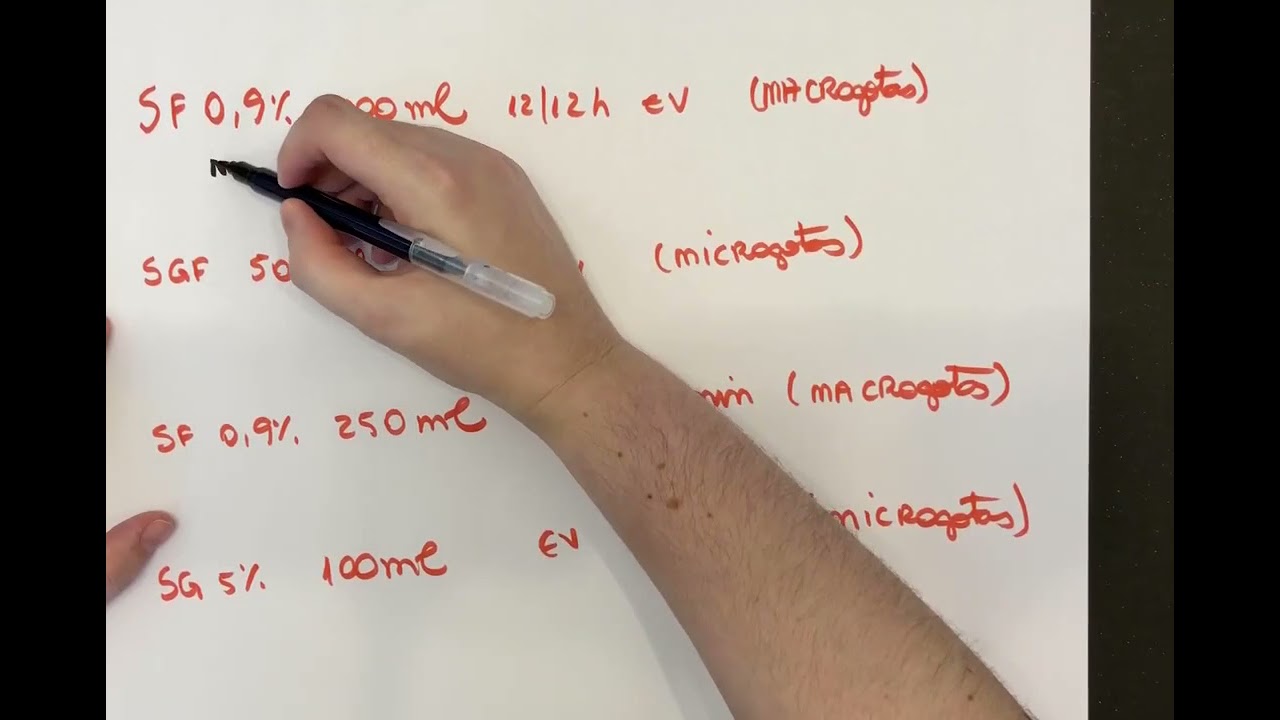 SF 0,9% 12/12h EV (MACROgotas)
SGF (MicROgotas)
SF 0,9% 250ml min (MACROgotas)
SG 5% 100ml EV microgotas)